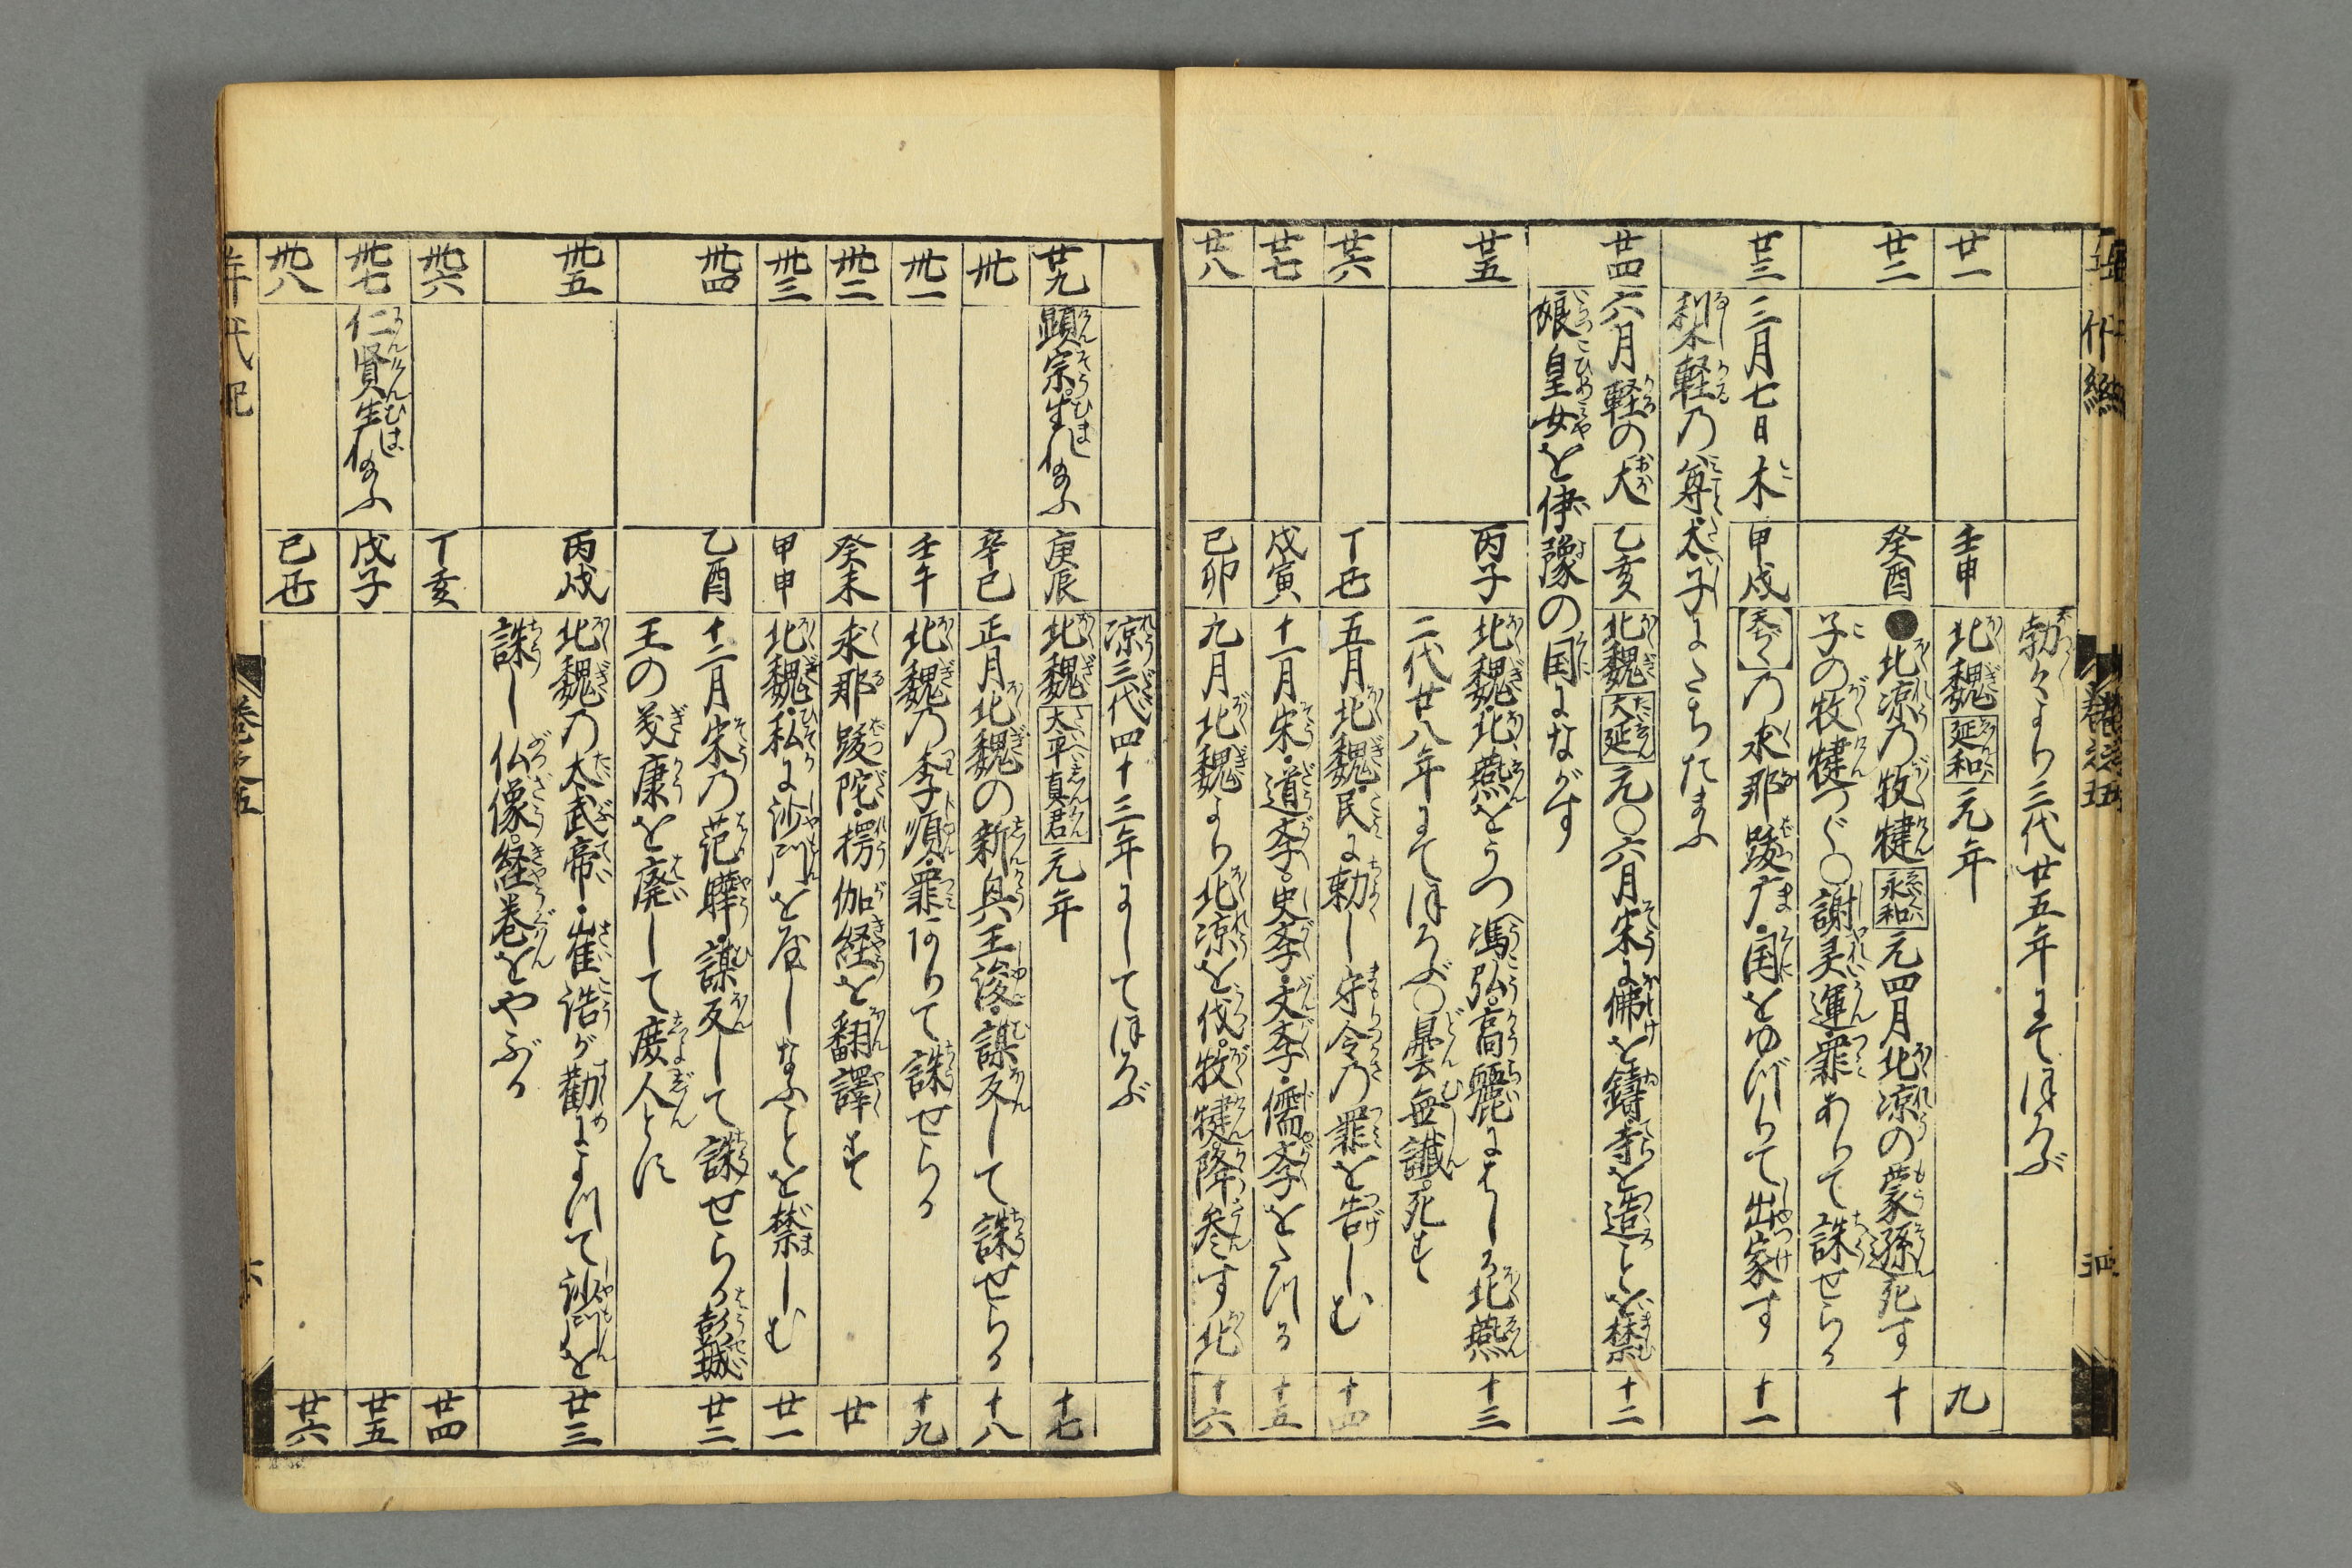 勃々より三代廿五年にてほろぶ
廿一
壬申
北魏延和元年
九
廿二
癸酉
●北凉乃牧犍永和元四月北凉の蒙遜死す
十
子の牧犍つぐ○謝灵運罪ありて誅せらる
廿三
三月七日木
甲戌
乃求那跋广国をゆづりて出家す
十一
梨軽乃尊太子にたちたまふ
廿四
六月軽の大
乙亥
北魏大延元○六月宋に佛を鋳寺を造ことを禁
十二
娘皇女を伊豫の国にながす
廿五
丙子
北魏北燕をうつ馮弘高麗にはしる北燕
十三
二代廿八年にてほろぶ○曇無讖死す
廿六
丁丑
五月北魏民に勅し守令乃罪を告しむ
十四
廿七
戊寅
十一月宋道斈史斈文斈儒斈をたつる
十五
廿八
己卯
九月北魏より北凉を伐牧犍降参す北
十六
凉三代四十三年にしてほろぶ
廿九
顕宗生れ給ふ
庚辰
北魏太平真君元年
十七
卅
辛巳
正月北魏の新興王俊謀反して誅せらる
十八
卅一
壬午
北魏乃李順罪ありて誅せらる
十九
卅二
癸未
求那跋陀楞伽経を翻譯す
廿
卅三
甲申
北魏私に沙門を養ことを禁しむ
廿一
卅四
乙酉
十二月宋乃范曄謀反して誅せらる彭城
廿二
王の義康を廃して庻人とす
卅五
丙戌
北魏乃太武帝崔浩が勧によつて沙門を
廿三
誅し仏像経巻をやぶる
卅六
丁亥
廿四
卅七
仁賢生れ給ふ
戊子
廿五
卅八
己丑
廿六
年代記
巻之五
六